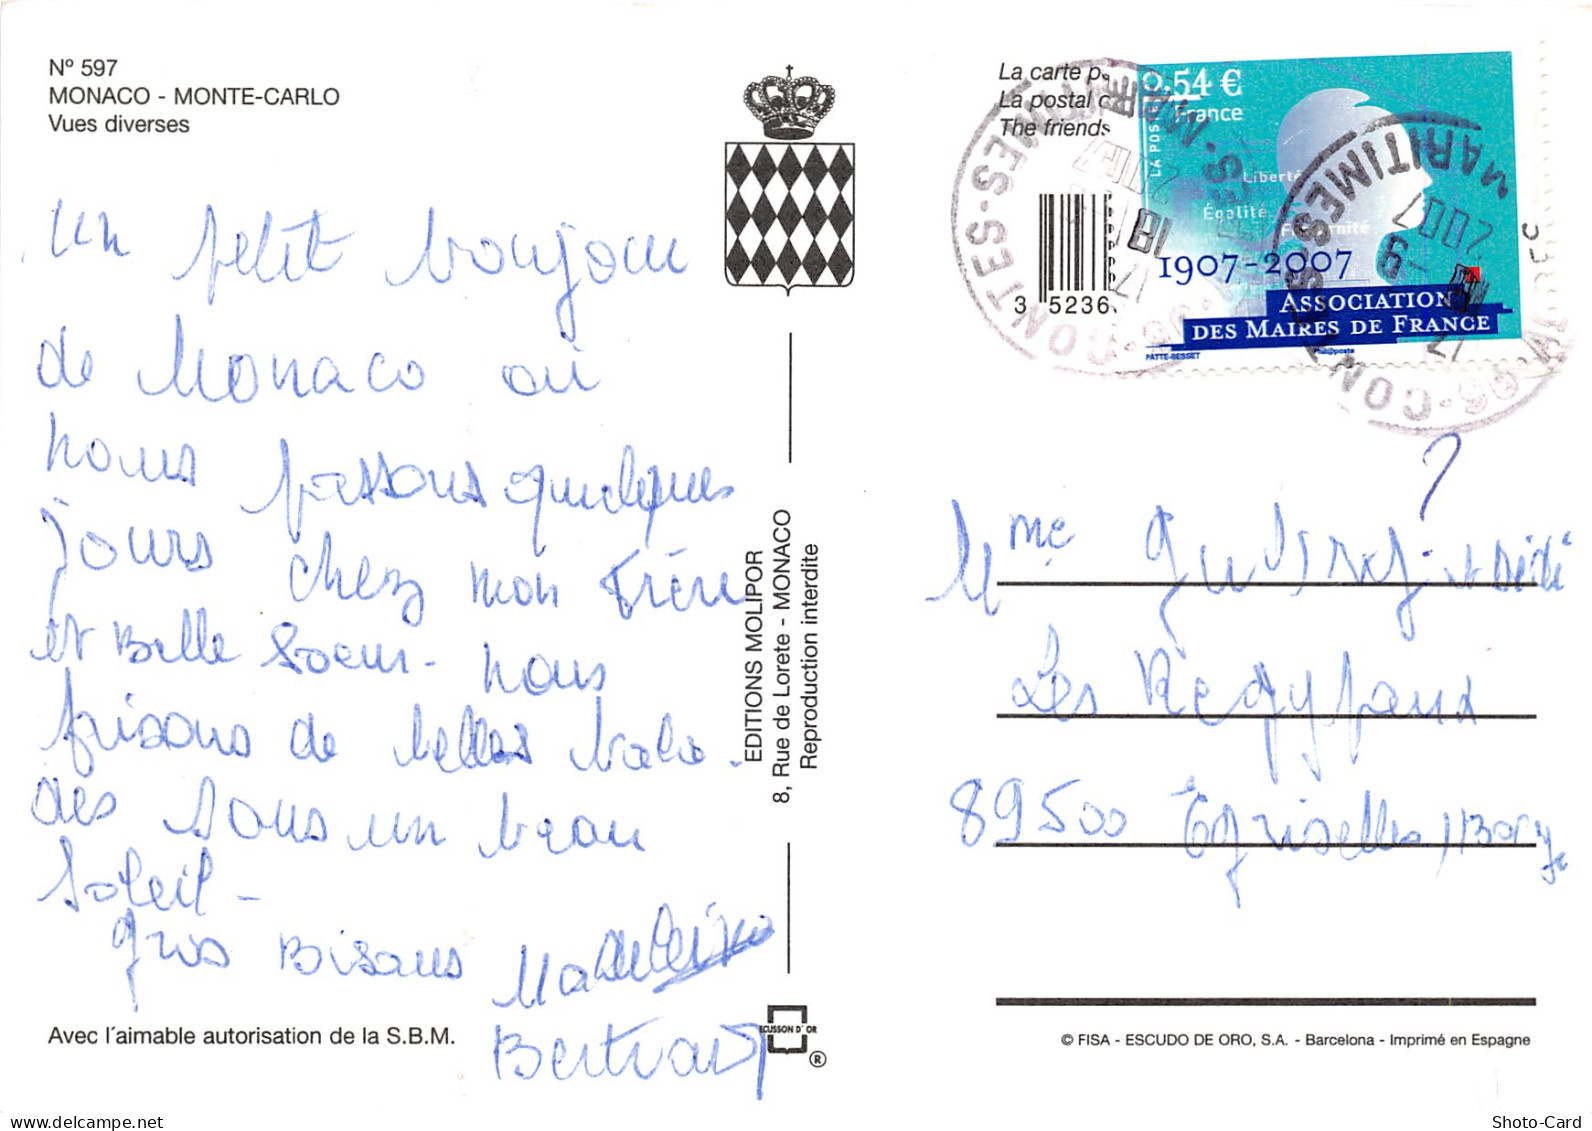 N° 597
MONACO - MONTE-CARLO
Vues diverses
un petit bonjour
de Monaco ou
nous passons quelques
jours chez mon Frère
et Belle Soeur - nous
faisons de belles bala-
des sous un beau
soleil -
gros Bisous Madeleine
Bertrand
Avec l'aimable autorisation de la S.B.M.
EDITIONS MOLIPOR
8, Rue de Lorete - MONACO
Reproduction interdite
ECUSSON D'OR
®
La carte p
La postal
The friends
3 5236
0,54 €
France
LA POSTE
Liberté
Égalité
Fraternité
1907-2007
ASSOCIATION
DES MAIRES DE FRANCE
PATTE-BESSET
Phil@poste
06-CONTES
MARITIMES
2007
06-CONTES
MARITIMES
2007
?
Mme et Dédé
Les
89500
© FISA - ESCUDO DE ORO, S.A. - Barcelona - Imprimé en Espagne
Shoto-Card